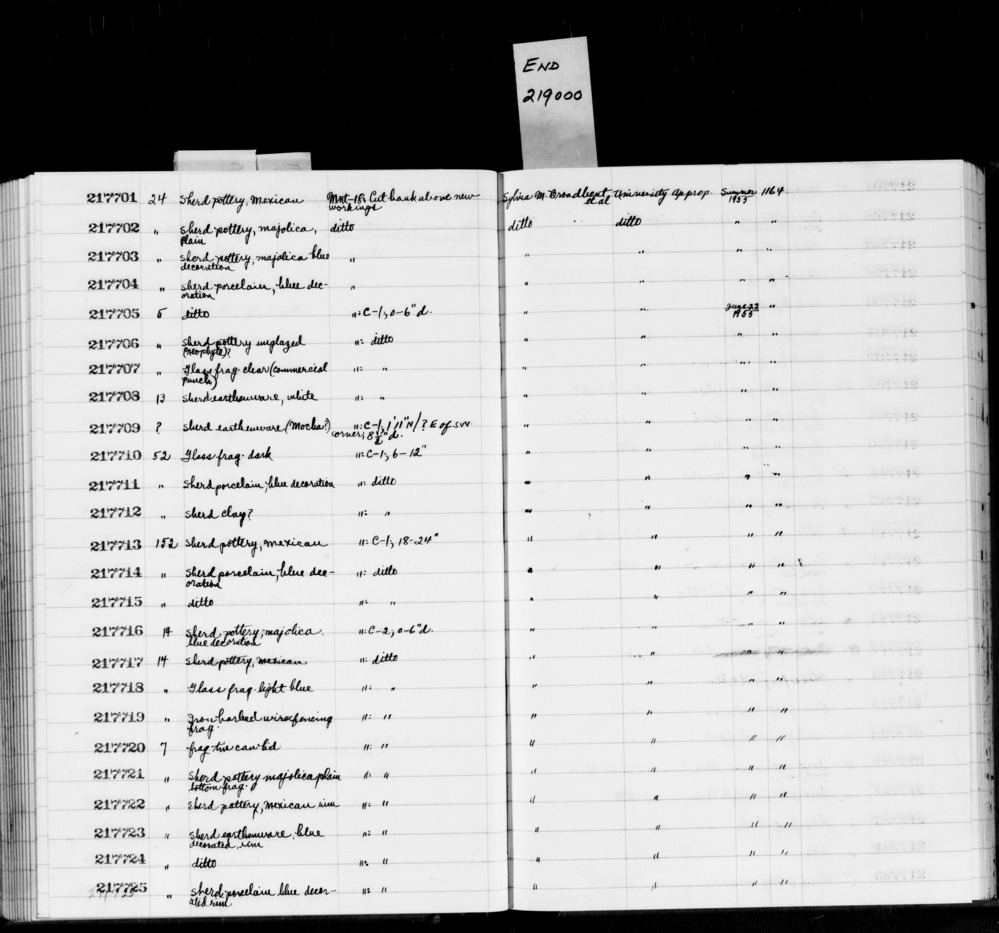 END
219000
217701 24 Sherd pottery, Mexican Mnt-18: Cut bank above new Sylvia M. Broadbent University approp. Summer 1164
workings et al 1955
217702 " Sherd pottery, majolica, ditto ditto ditto " "
plain
217703 " sherd pottery, majolica blue " " " " "
decoration
217704 " sherd porcelain, blue dec- " " " " "
oration
217705 5 ditto ": C-1, 0-6" d. " " June 23 "
1955
217706 " sherd pottery unglazed ": ditto " " " "
(Neophyte)?
217707 " Glass frag. clear (commercial ": " " " " "
217708 13 sherd earthenware, white ": " " " " "
217709 ? sherd earthenware (Mocha?) ": C-1, 1'11" N/? E of SW " " " "
corner; 8½" d.
217710 52 Glass frag. dark ": C-1, 6-12" " " " "
217711 " Sherd porcelain, blue decoration ": ditto " " " "
217712 " sherd clay? ": " " " " "
217713 152 sherd pottery, mexican ": C-1, 18-24" " " " "
217714 " Sherd porcelain, blue dec- ": ditto " " " "
oration
217715 " ditto ": " " " " "
217716 14 sherd pottery, majolica, ": C-2, 0-6" d. " " " "
blue decoration
217717 14 sherd pottery, mexican ": ditto " " " "
217718 " Glass frag. light blue ": " " " " "
217719 " Iron barbed wire fencing ": " " " " "
frag.
217720 7 frag tin can lid ": " " " " "
217721 " Sherd pottery majolica plain ": " " " " "
bottom frag.
217722 " Sherd pottery, mexican rim ": " " " " "
217723 " sherd earthenware, blue ": " " " " "
decorated, rim
217724 " ditto ": " " " " "
217725 " sherd porcelain blue decor- ": " " " " "
ated rim